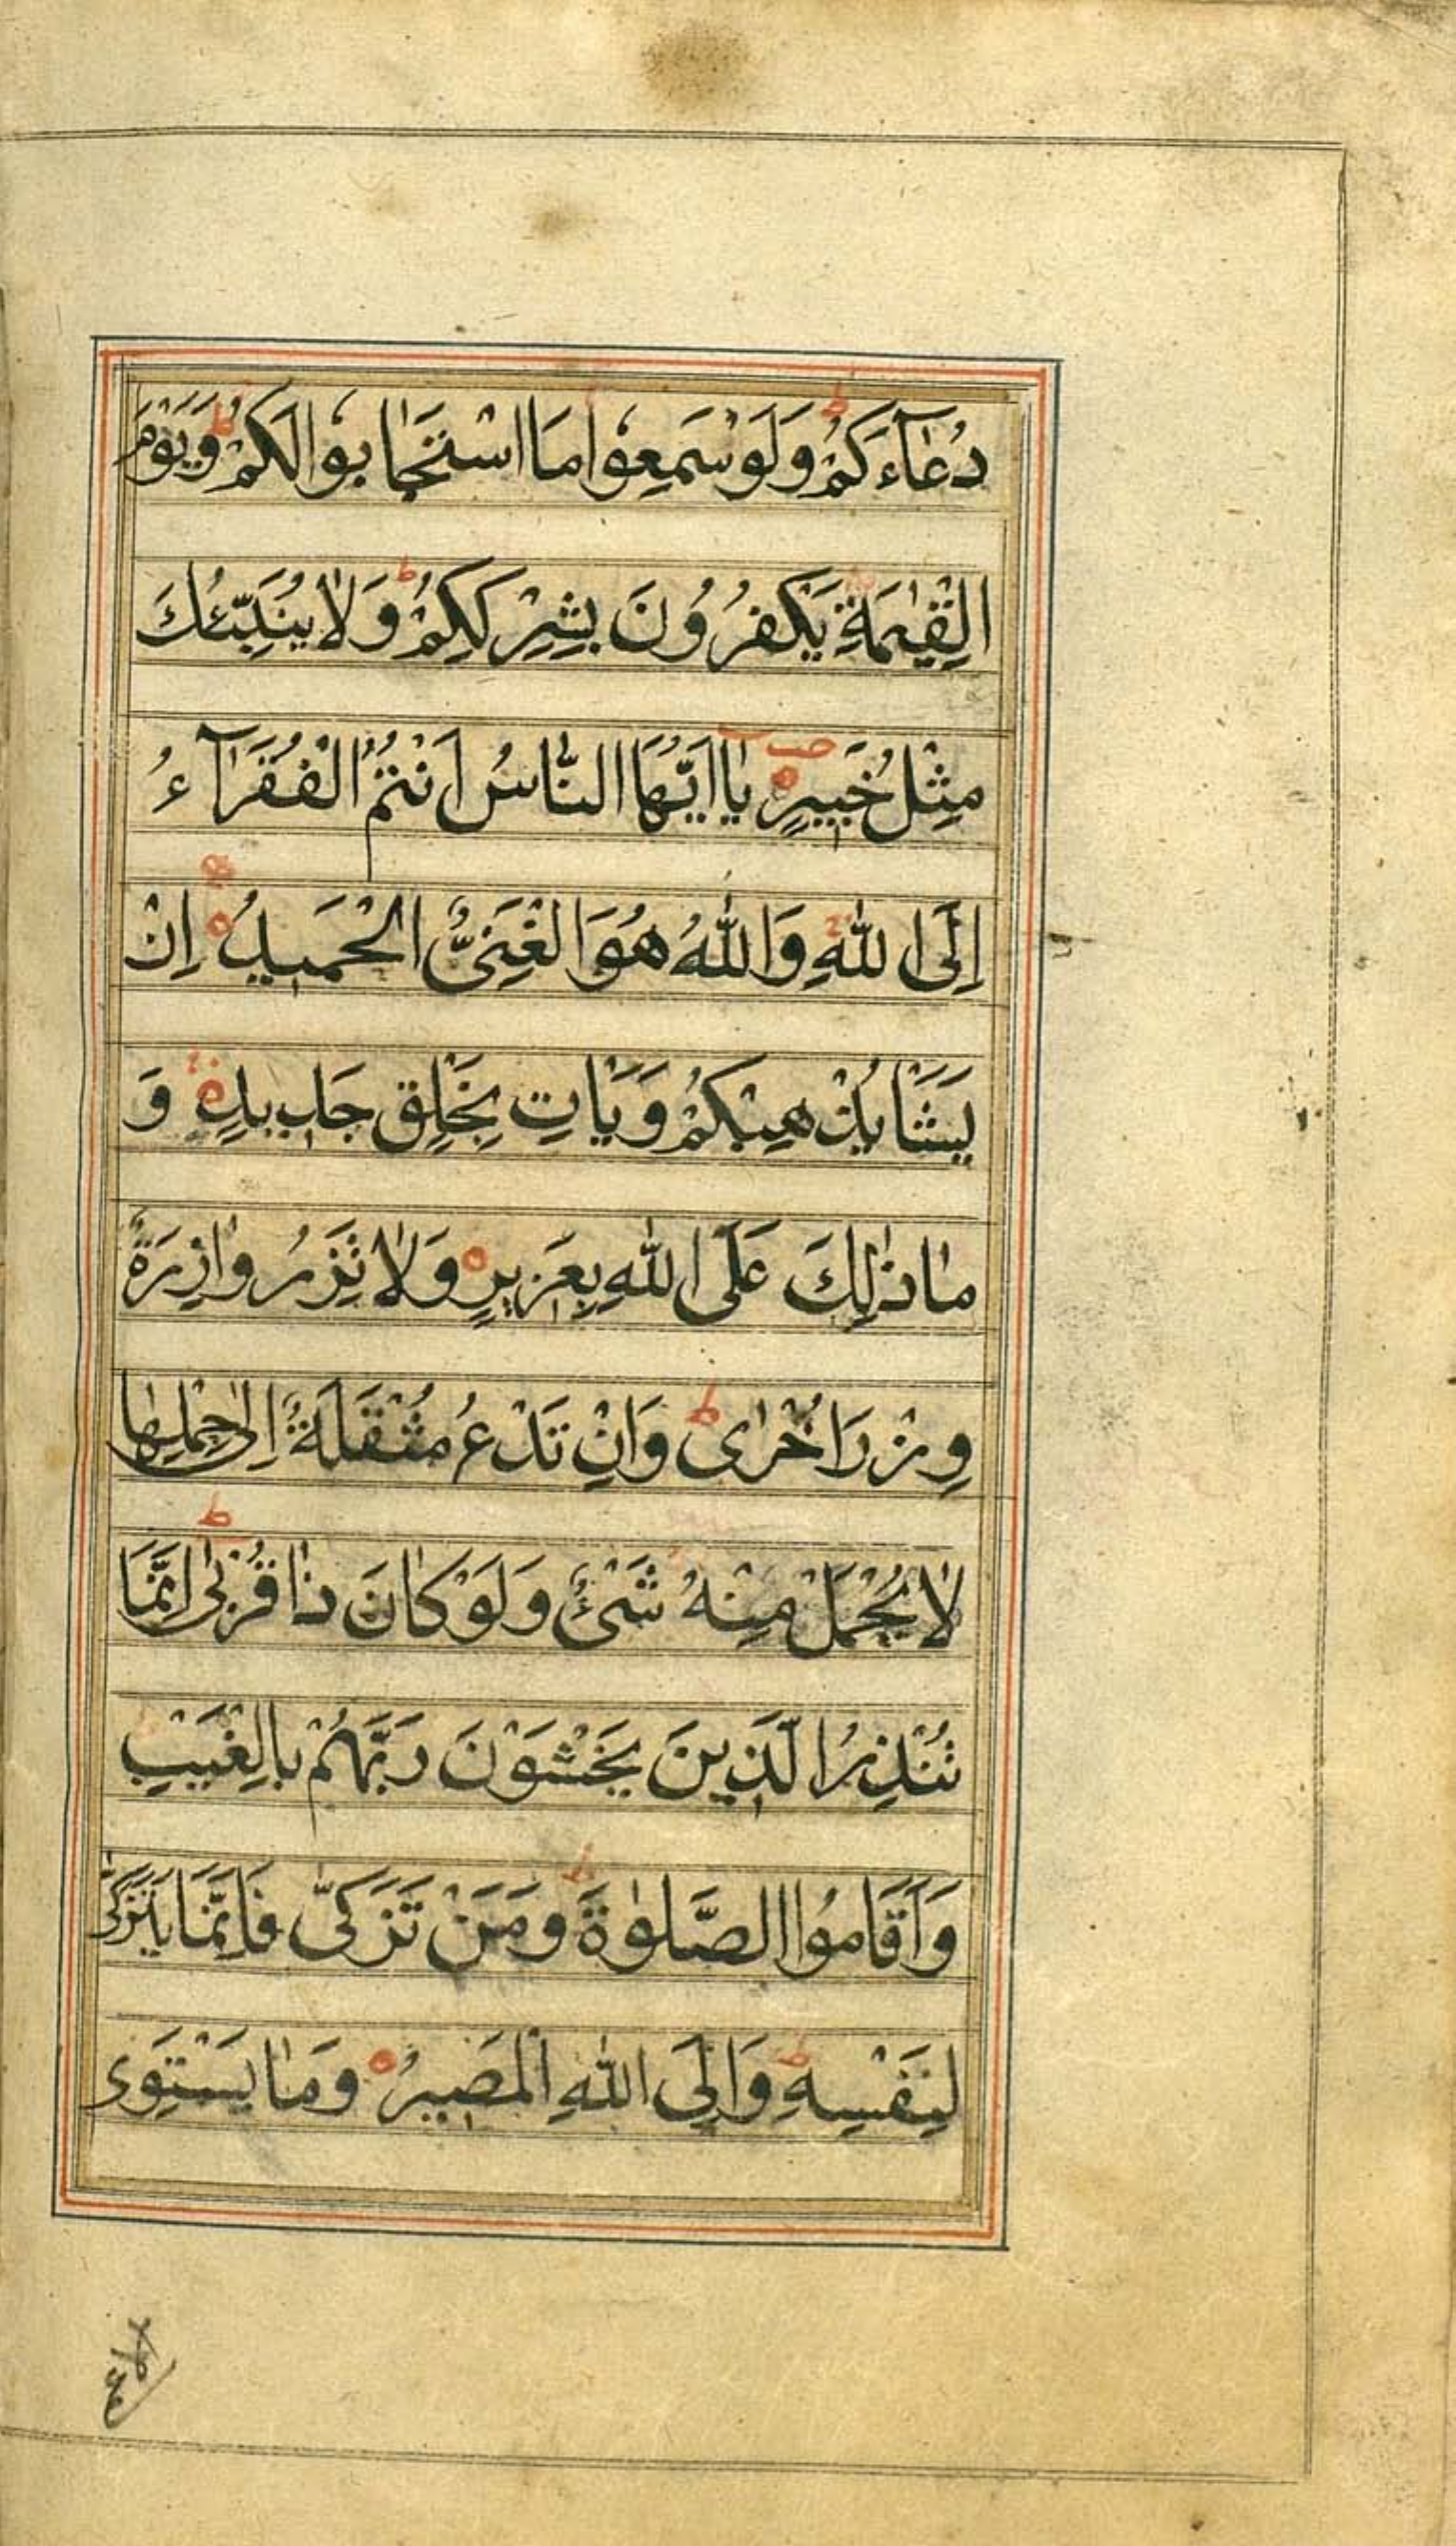 دُعَآءَكُمْ وَلَوْ سَمِعُوا مَا اسْتَجَابُوا لَكُمْ وَيَوْمَ
الْقِيٰمَةِ يَكْفُرُونَ بِشِرْكِكُمْ وَلَا يُنَبِّئُكَ
مِثْلُ خَبِيرٍ يَا اَيُّهَا النَّاسُ اَنْتُمُ الْفُقَرَآءُ
اِلَى اللّٰهِ وَاللّٰهُ هُوَ الْغَنِىُّ الْحَمِيدُ اِنْ
يَشَأْ يُذْهِبْكُمْ وَيَأْتِ بِخَلْقٍ جَدِيدٍ وَ
مَا ذٰلِكَ عَلَى اللّٰهِ بِعَزِيزٍ وَلَا تَزِرُ وَازِرَةٌ
وِزْرَ اُخْرٰى وَاِنْ تَدْعُ مُثْقَلَةٌ اِلٰى حِمْلِهَا
لَا يُحْمَلْ مِنْهُ شَىْءٌ وَلَوْ كَانَ ذَا قُرْبٰى اِنَّمَا
تُنْذِرُ الَّذِينَ يَخْشَوْنَ رَبَّهُمْ بِالْغَيْبِ
وَاَقَامُوا الصَّلٰوةَ وَمَنْ تَزَكّٰى فَاِنَّمَا يَتَزَكّٰى
لِنَفْسِهِ وَاِلَى اللّٰهِ الْمَصِيرُ وَمَا يَسْتَوِى